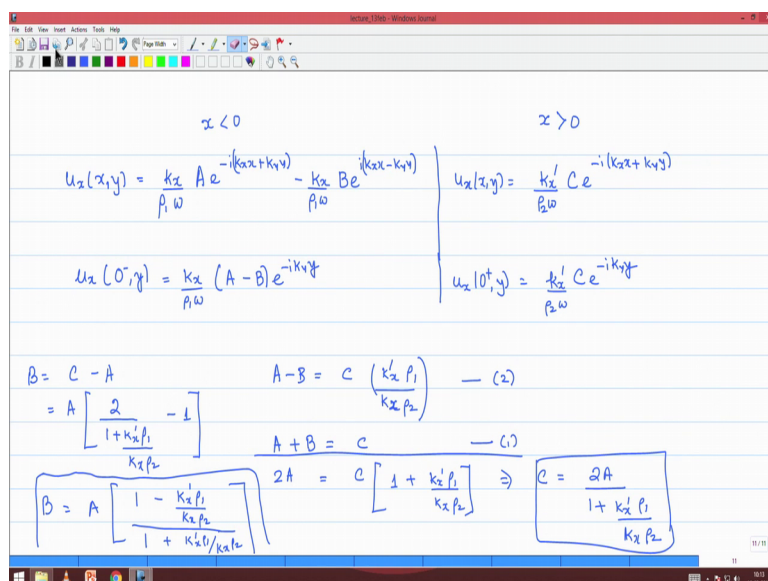 lecture_13feb - Windows Journal
File Edit View Insert Actions Tools Help
Page Width
B I
x < 0
x > 0
u_x(x,y) = k_x/ρ_1ω A e^{-i(k_x x + k_y y)} - k_x/ρ_1ω B e^{i(k_x x - k_y y)}
u_x(x,y) = k_x'/ρ_2ω C e^{-i(k_x x + k_y y)}
u_x(0⁻,y) = k_x/ρ_1ω (A - B) e^{-ik_y y}
u_x(0⁺,y) = k_x'/ρ_2ω C e^{-ik_y y}
B = C - A
= A [2/(1 + k_x'ρ_1/k_xρ_2) - 1]
B = A [(1 - k_x'ρ_1/k_xρ_2)/(1 + k_x'ρ_1/k_xρ_2)]
A - B = C (k_x'ρ_1/k_xρ_2) — (2)
A + B = C — (1)
2A = C [1 + k_x'ρ_1/k_xρ_2] ⇒ C = 2A/(1 + k_x'ρ_1/k_xρ_2)
11 / 11
11
10:13